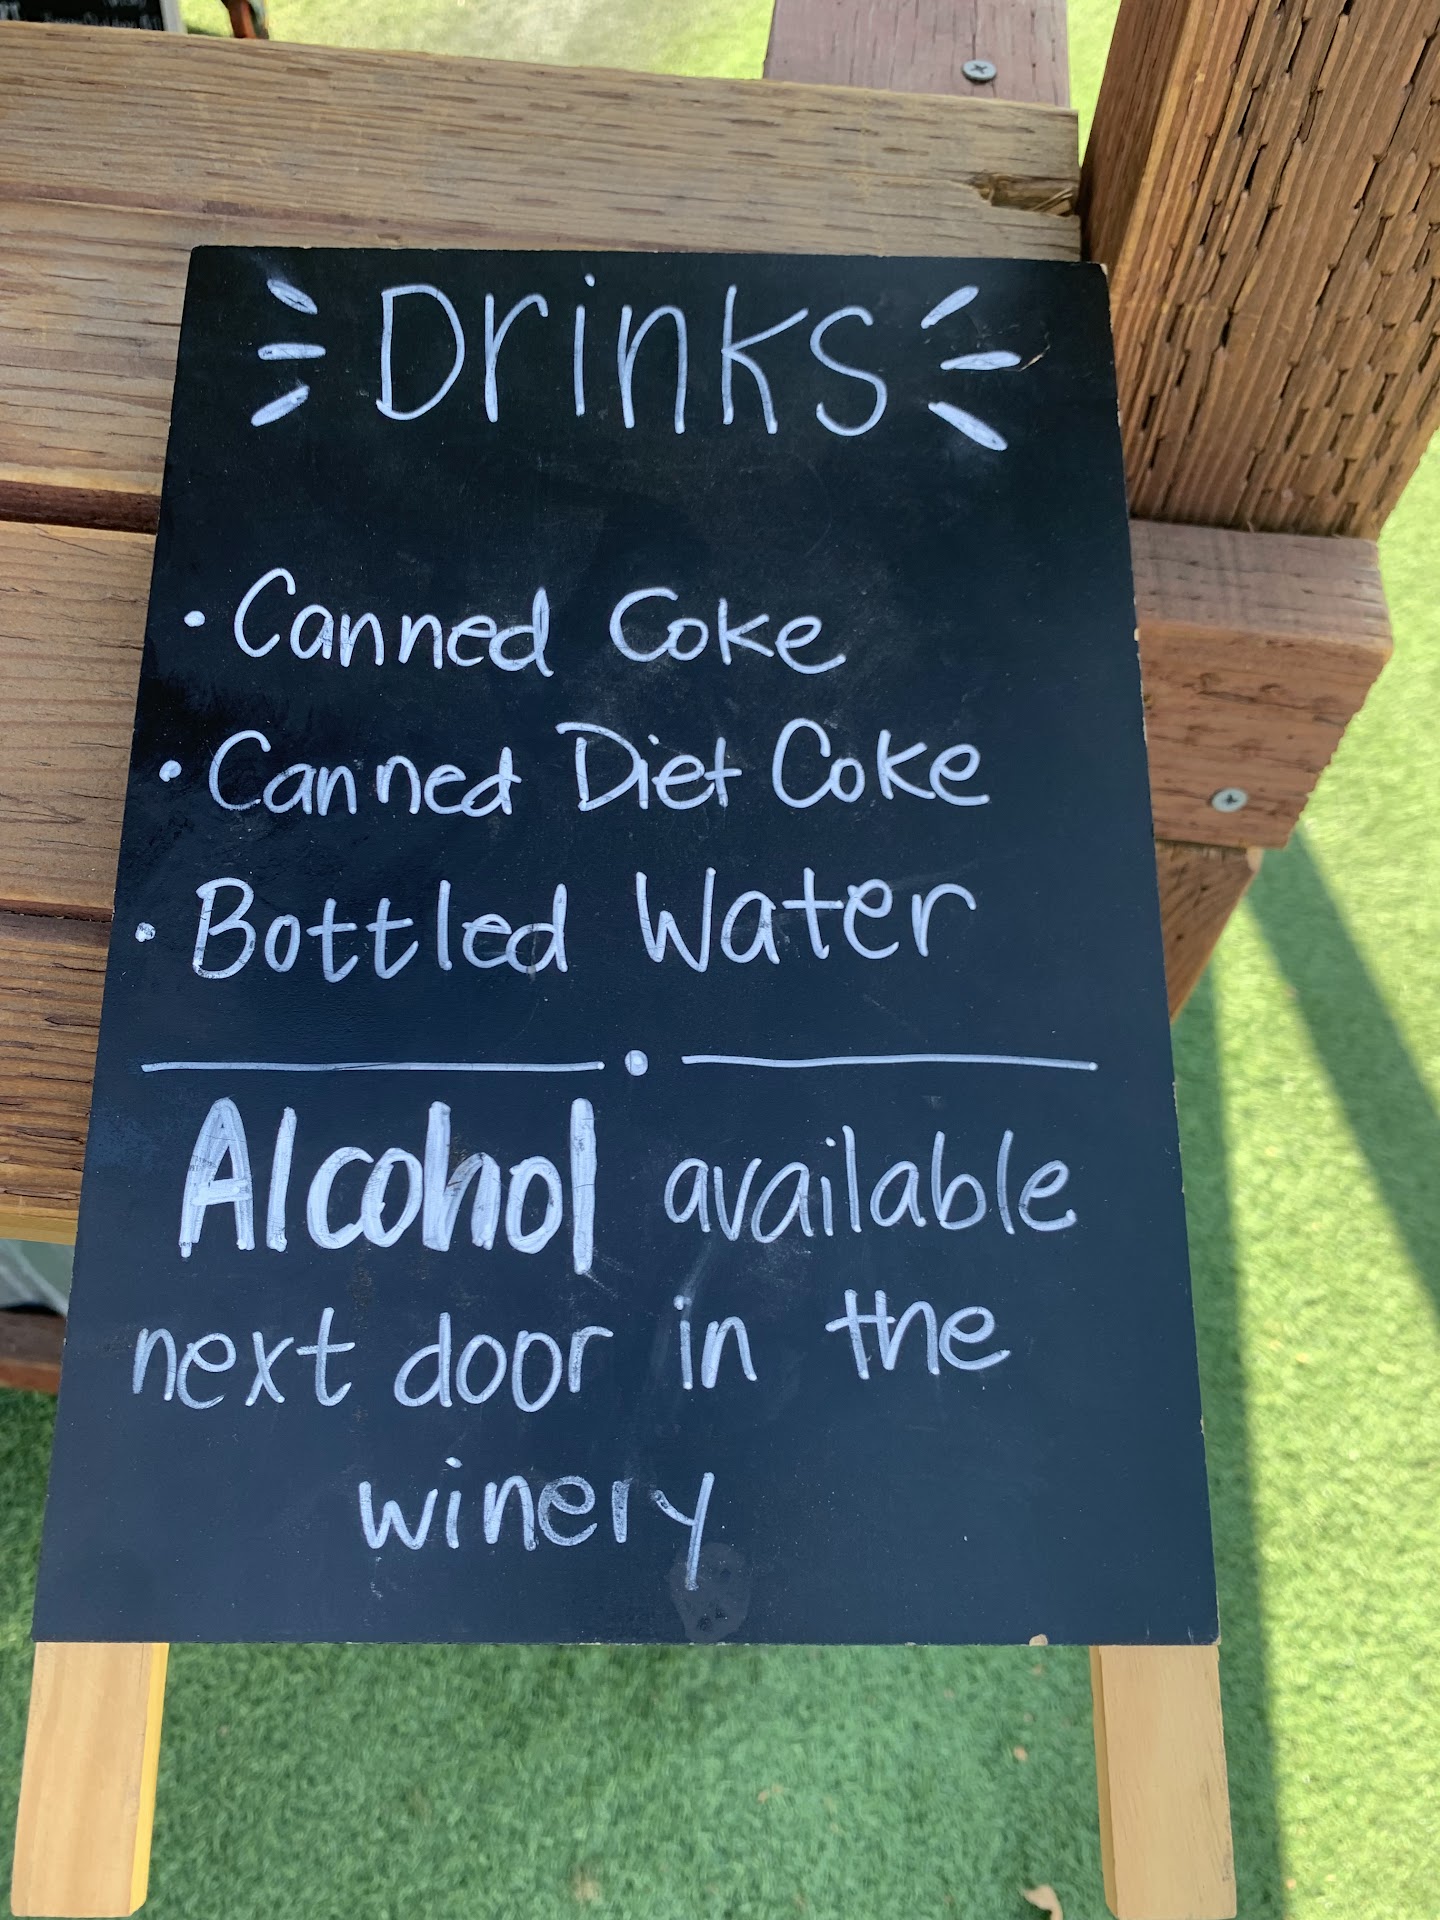 Drinks
• Canned Coke
• Canned Diet Coke
• Bottled Water
Alcohol available
next door in the
winery